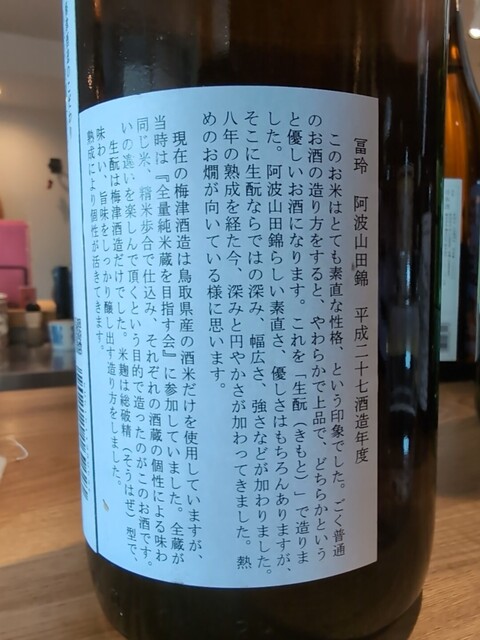 冨玲　阿波山田錦　平成二十七酒造年度
このお米はとても素直な性格、という印象でした。ごく普通
のお酒の造り方をすると、やわらかで上品で、どちらかという
と優しいお酒になります。これを「生酛（きもと）」で造りま
した。阿波山田錦らしい素直さ、優しさはもちろんありますが、
そこに生酛ならではの深み、幅広さ、強さなどが加わりました。
八年の熟成を経た今、深みと円やかさが加わってきました。熱
めのお燗が向いている様に思います。
現在の梅津酒造は鳥取県産の酒米だけを使用していますが、
当時は『全量純米蔵を目指す会』に参加していました。全蔵が
同じ米、精米歩合で仕込み、それぞれの酒蔵の個性による味わ
いの違いを楽しんで頂くという目的で造ったのがこのお酒です。
生酛は梅津酒造だけでした。米麹は総破精（そうはぜ）型で、
味わい、旨味をしっかり醸し出す造り方をしました。
熟成により個性が活きてきます。